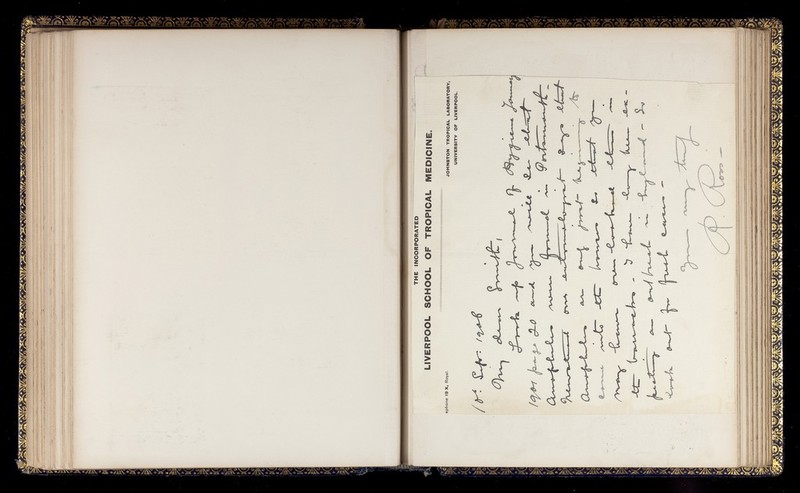 THE INCORPORATED
LIVERPOOL SCHOOL OF TROPICAL MEDICINE.
JOHNSTON TROPICAL LABORATORY,
UNIVERSITY OF LIVERPOOL
Royal
Sep. 1906
My dear Smith,
Look up Journal of Hygiene January
1901 page 20 and you will see that
Anopheles were found in Portsmouth –
Newstead our entomologist says that
Anopheles are only just beginning to
come into the houses so that you
may have over-looked them in
the barracks – I have long been ex-
pecting an outbreak in England – So
look out for fresh cases –
Yours very truly
R. Ross –